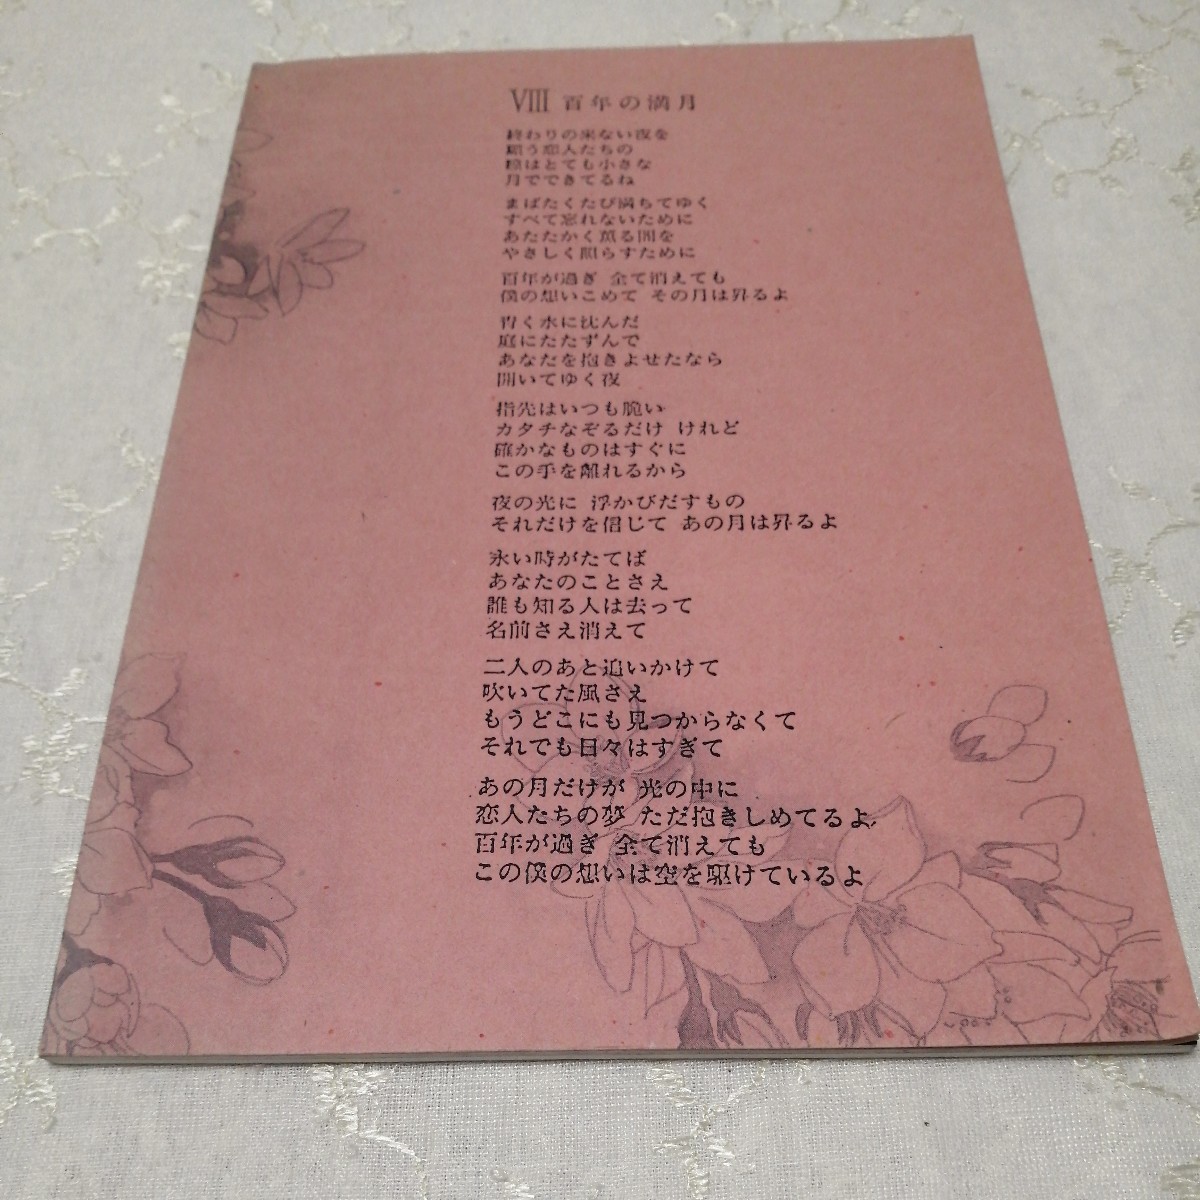 VIII 百年の満月
終わりの来ない夜を
願う恋人たちの
瞳はとても小さな
月でできてるね
まばたくたび満ちてゆく
すべて忘れないために
あたたかく薫る闇を
やさしく照らすために
百年が過ぎ 全て消えても
僕の想いこめて その月は昇るよ
青く水に沈んだ
庭にたたずんで
あなたを抱きよせたなら
開いてゆく夜
指先はいつも脆い
カタチなぞるだけ けれど
確かなものはすぐに
この手を離れるから
夜の光に 浮かびだすもの
それだけを信じて あの月は昇るよ
永い時がたてば
あなたのことさえ
誰も知る人は去って
名前さえ消えて
二人のあと追いかけて
吹いてた風さえ
もうどこにも見つからなくて
それでも日々はすぎて
あの月だけが 光の中に
恋人たちの夢 ただ抱きしめてるよ
百年が過ぎ 全て消えても
この僕の想いは空を駆けているよ